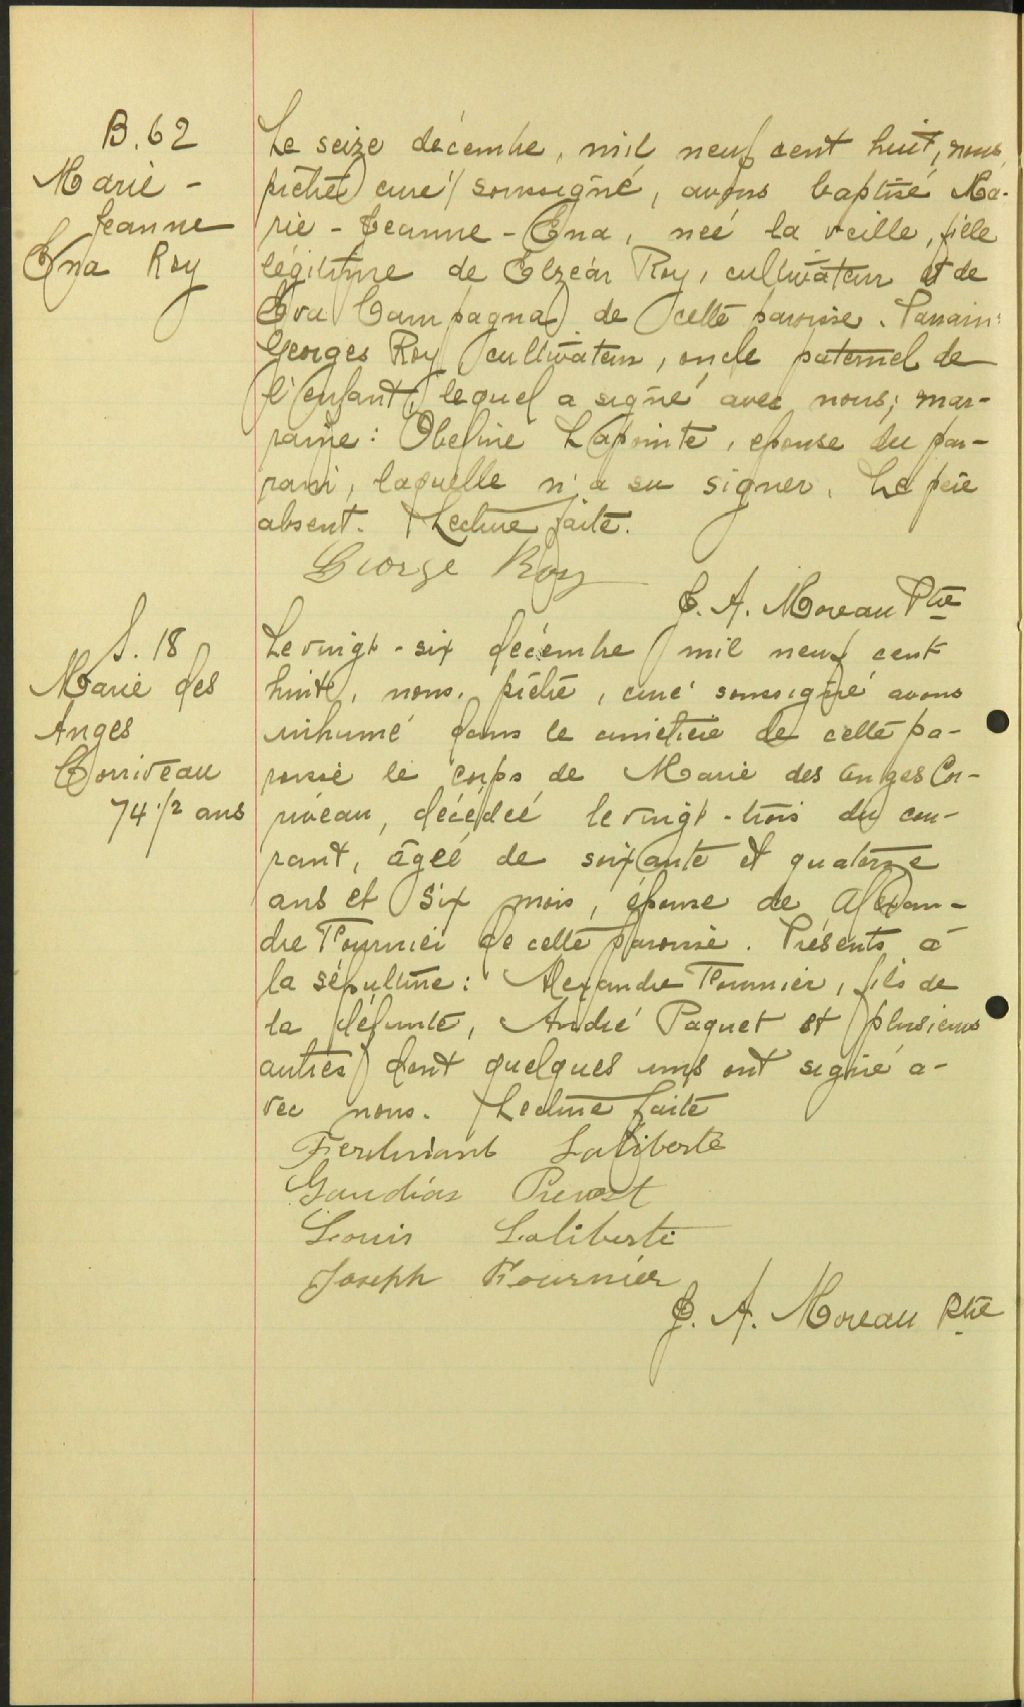 B. 62
Marie -
Jeanne
Ena Roy
Le seize décembre, mil neuf cent huit, nous,
prêtre curé soussigné, avons baptisé Ma-
rie - Jeanne - Ena, née la veille, fille
légitime de Elzéar Roy, cultivateur et de
Eva Campagna de cette paroisse. Parrain:
Georges Roy cultivateur, oncle paternel de
l'enfant, lequel a signé avec nous; mar-
raine: Obeline Lapointe, épouse du par-
rain, laquelle n'a su signer. Le père
absent. Lecture faite.
George Roy
J. A. Moreau Ptre
S. 18
Marie des
Anges
Corriveau
74 1/2 ans
Le vingt-six décembre mil neuf cent
huit, nous, prêtre, curé soussigné avons
inhumé dans le cimetière de cette pa-
roisse le corps de Marie des Anges Cor-
riveau, décédée le vingt-trois du cou-
rant, âgée de soixante et quatorze
ans et six mois, épouse de Alexan-
dre Fournier de cette paroisse. Présents à
la sépulture: Alexandre Fournier, fils de
la défunte, André Paquet et plusieurs
autres dont quelques uns ont signé a-
vec nous. Lecture faite
Ferdinant Laliberté
Gaudias Prevost
Louis Laliberte
Joseph Fournier
J. A. Moreau Ptre